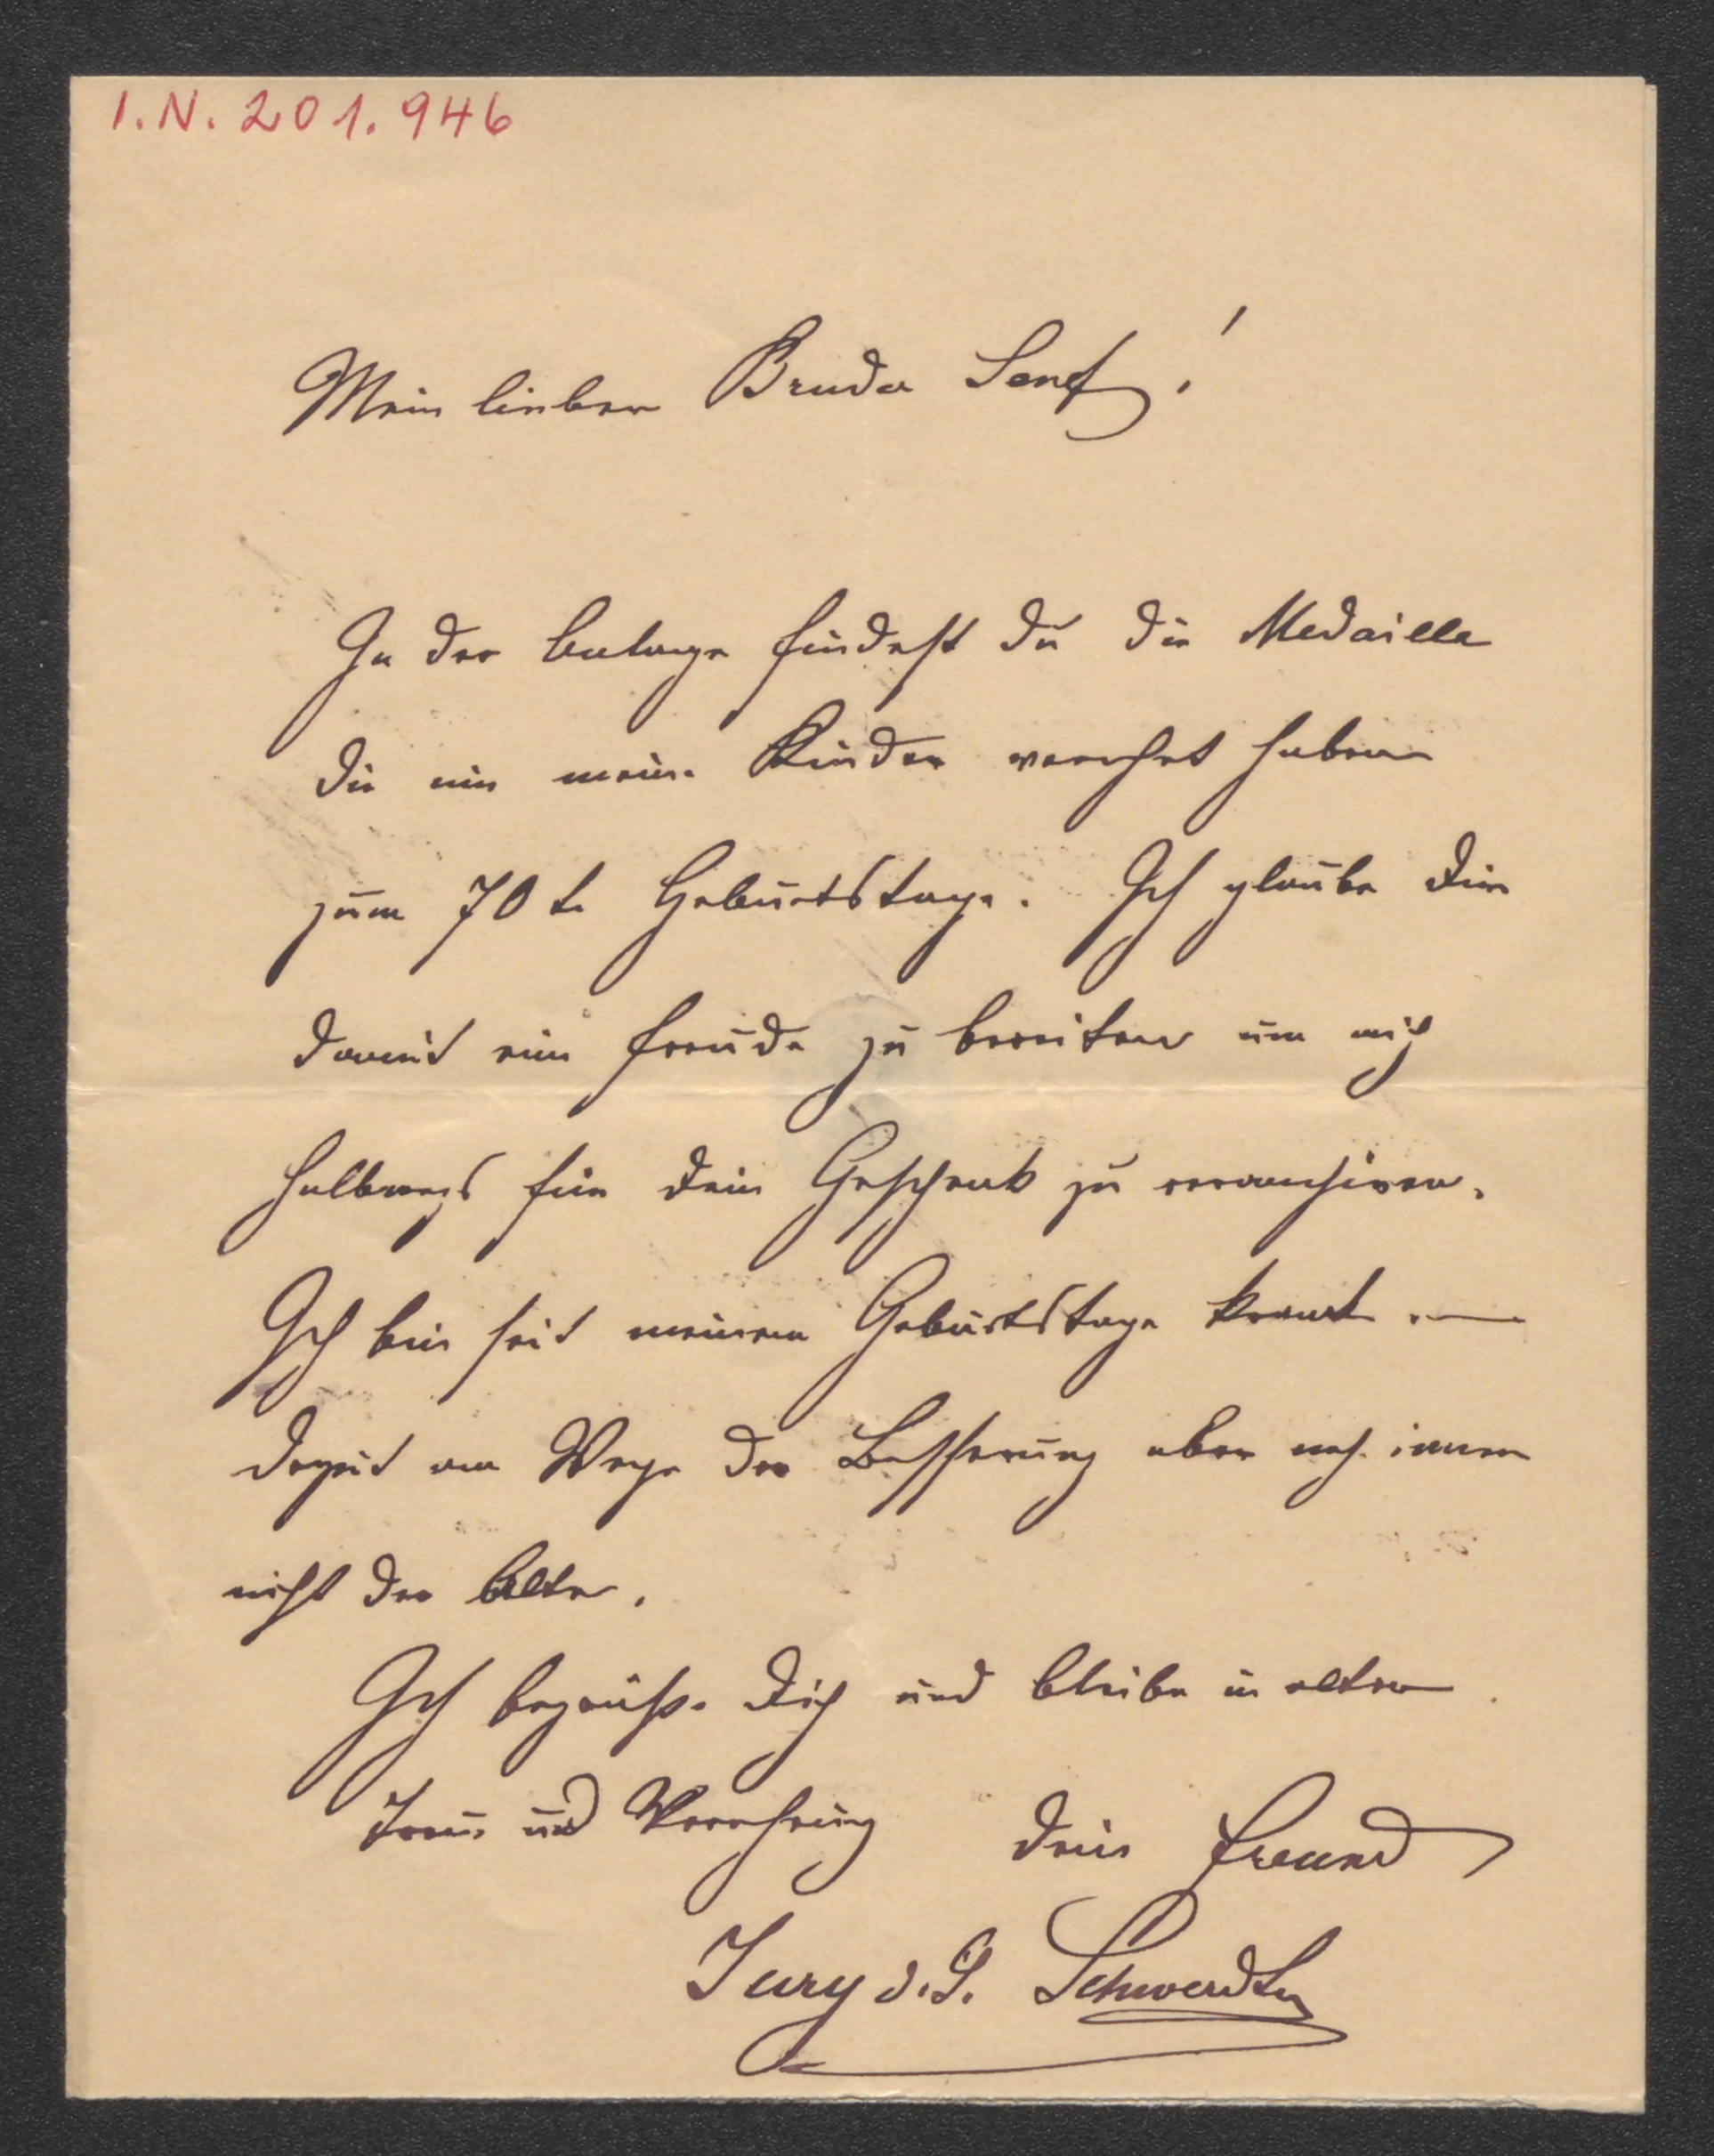 I.N. 201.946
Mein lieber Bruder Senf!
In der Anlage findest Du die Medaille
die mir meine Kinder verehrt haben
zum 70 te Geburtstage. Ich glaube Dir
damit eine Freude zu bereiten um mich
halbwegs für Dein Geschenk zu revanchiren.
Ich bin seit meinem Geburtstage krank. —
derzeit am Wege der Besserung aber noch immer
nicht der Alte.
Ich begrüße Dich und bleibe in alter
Treue und Verehrung Dein Freund
Jury d. J. Schwerdtner